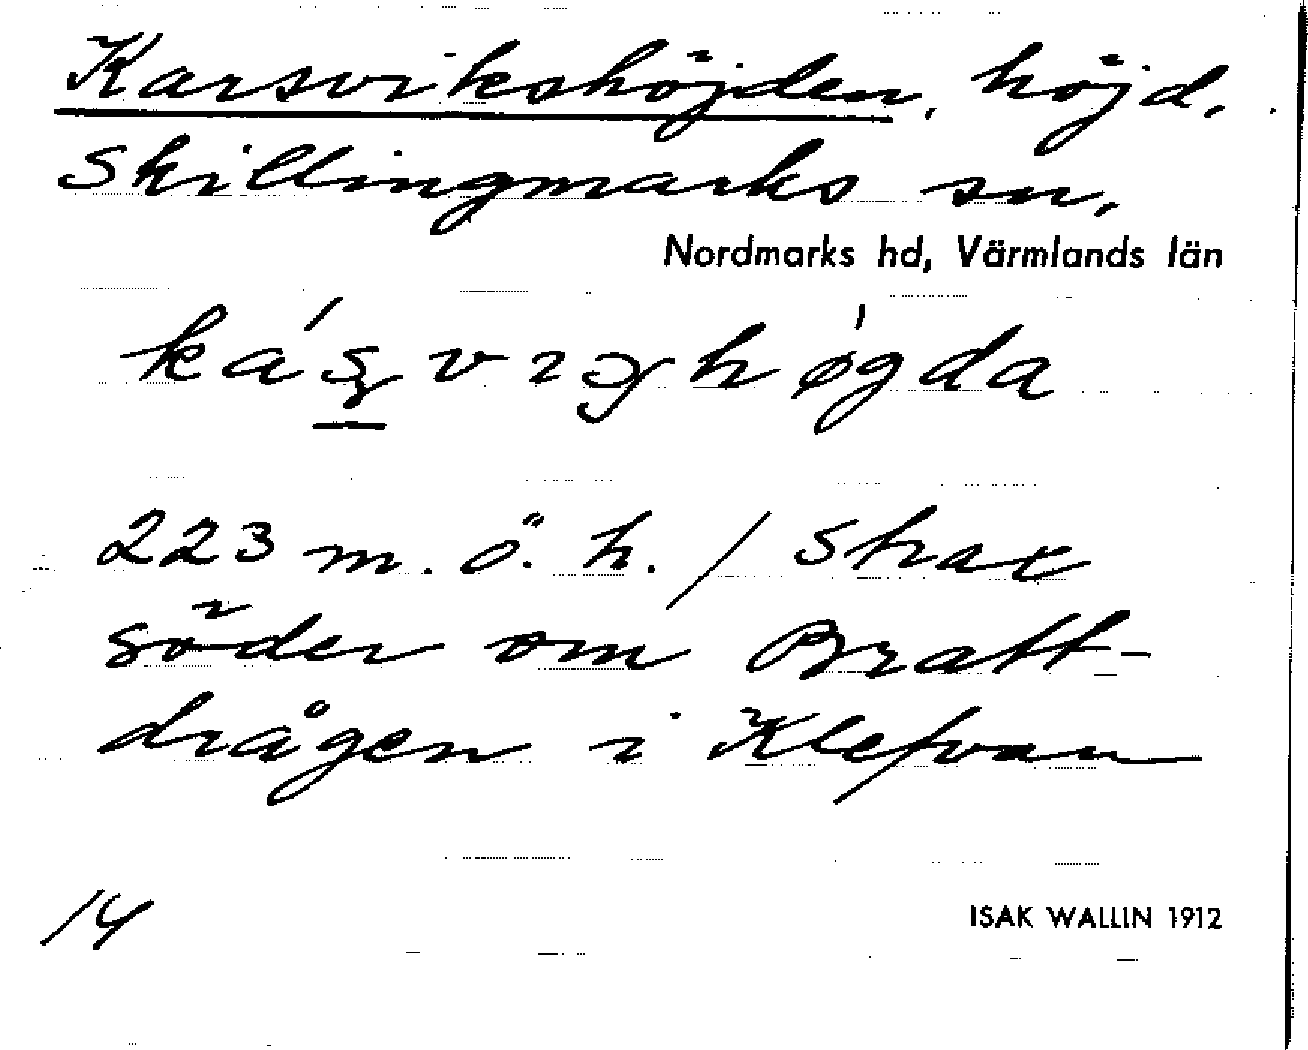 Karsvikshöjden, höjd.
Skillingmarks sn,
Nordmarks hd, Värmlands län
223 m. ö. h. / Strax
söder om Bratt-
drågen i Klefvan
14
ISAK WALLIN 1912